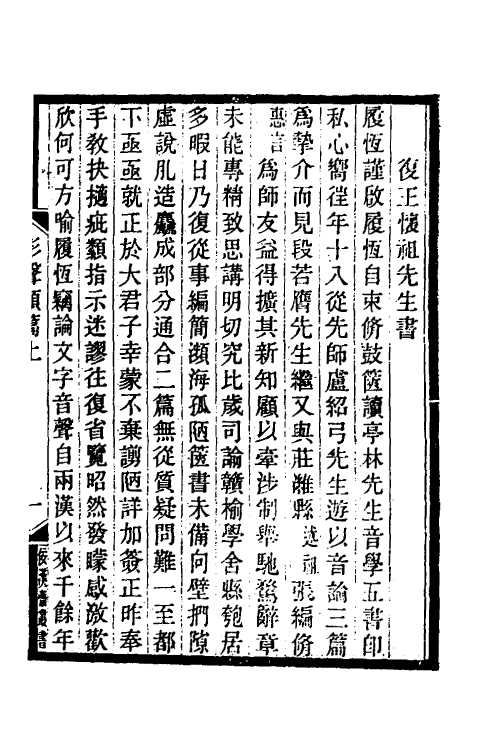 復王懷祖先生書
履恆謹啟履恆自束脩鼓篋讀亭林先生音學五書卽
私心嚮徃年十八從先師盧紹弓先生遊以音論三篇
爲摯介而見段若膺先生繼又與莊濰縣述祖張編脩
惠言爲師友益得擴其新知顧以牽涉制舉馳騖辭章
未能專精致思講明切究比歲司諭贛榆學舍縣匏居
多暇日乃復從事編簡瀕海孤陋篋書未備向壁捫隙
虛說肊造麤成部分通合二篇無從質疑問難一至都
下亟亟就正於大君子幸蒙不棄謭陋詳加簽正昨奉
手敎抉擿疵纇指示迷謬往復省覽昭然發矇感激歡
欣何可方喻履恆竊論文字音聲自兩漢以來千餘年
形聲類篇上
一